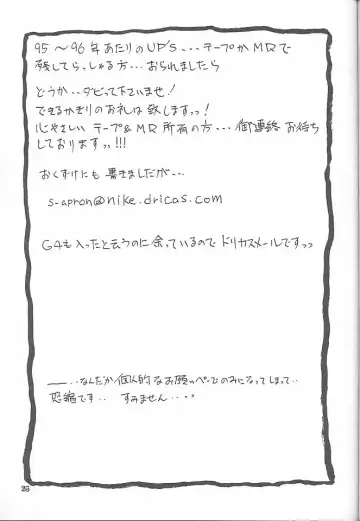 95～96年あたりのUP'S...テープかMDで
残してらっしゃる方...おられましたら
どうか..ダビって下さいませ!
できるかぎりのお礼は致しますっっ!
心やさしいテープ&MD所有の方...御連絡お待ち
しておりますっっ!!!
おくずけにも書きましたが...
s-apron@nike.dricas.com
G4も入ったと云うのに余っているのでドリカスメールですっっ
――...なんだか個人的なお願いページのみになってしまって..
恐縮です..すみません....
28